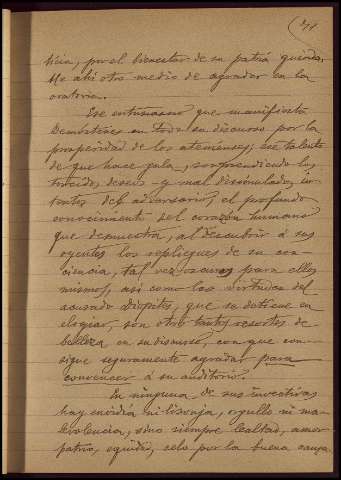 ticia, por el bienestar de su patria querida.
He ahí otro medio de agradar en la
oratoria.
Ese entusiasmo que manifiesta
Demóstenes en todo su discurso por la
prosperidad de los atenienses, ese talento
de que hace gala, sorprendiendo los
torcidos deseos y mal disimulados in-
tentos del adversario, el profundo
conocimiento del corazón humano
que demuestra, al descubrir á sus
oyentes los repliegues de su con-
ciencia, tal vez oscuros para ellos
mismos, así como las virtudes del
acusado Diopites, que se detiene en
elogiar, son otros tantos resortes de
belleza en su discurso, con que con-
sigue seguramente agradar para
convencer á su auditorio.
En ninguna de sus invectivas
hay envidia ni lisonja, orgullo ni ma-
levolencia, sino siempre lealtad, amor
patrio, equidad, celo por la buena causa.